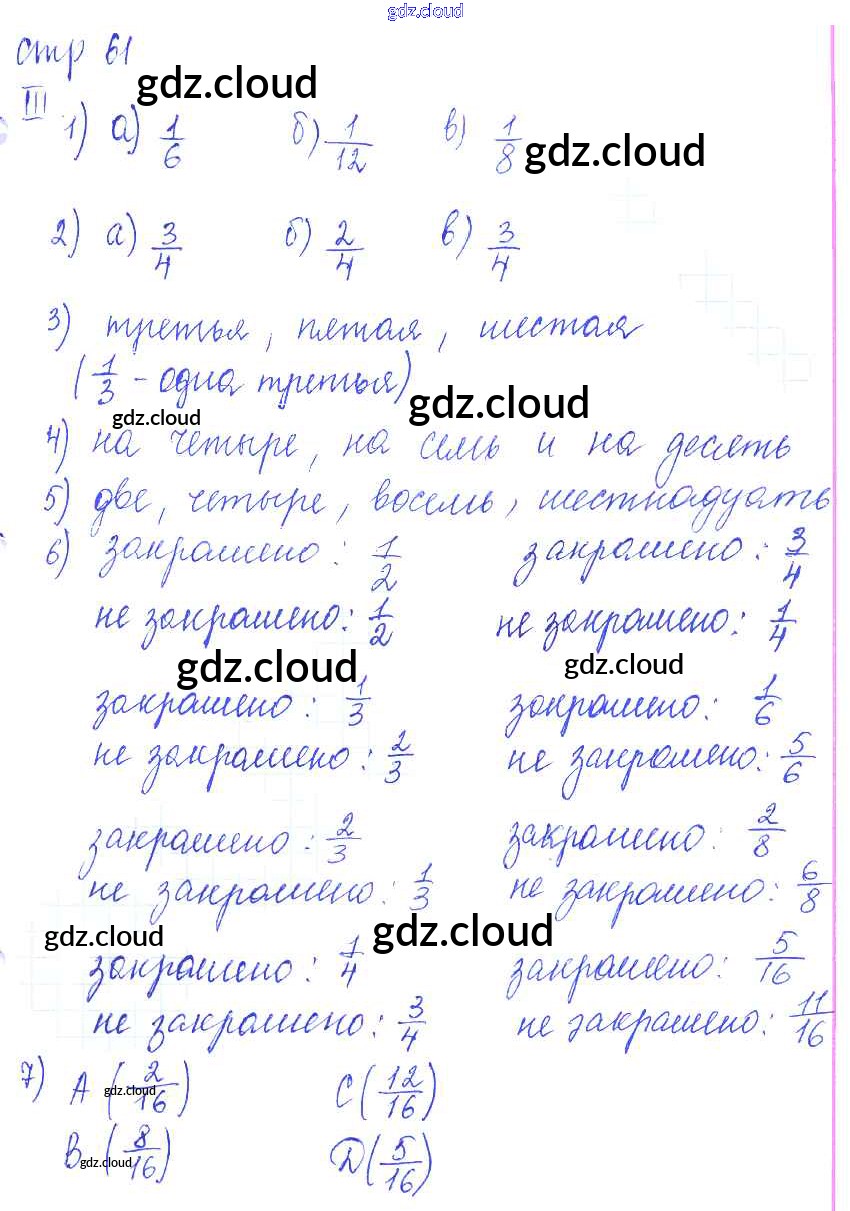 gdz.cloud
стр 61
gdz.cloud
III 1) а) 1/6 б) 1/12 в) 1/8 gdz.cloud
2) а) 3/4 б) 2/4 в) 3/4
3) третья, пятая, шестая
(1/3 - одна третья) gdz.cloud
gdz.cloud
4) на четыре, на семь и на десять
5) две, четыре, восемь, шестнадцать
6) закрашено: 1/2 закрашено: 3/4
не закрашено: 1/2 не закрашено: 1/4
gdz.cloud gdz.cloud
закрашено: 1/3 закрашено: 1/6
не закрашено: 2/3 не закрашено: 5/6
закрашено: 2/3 закрашено: 2/8
не закрашено: 1/3 не закрашено: 6/8
gdz.cloud gdz.cloud
закрашено: 1/4 закрашено: 5/16
не закрашено: 3/4 не закрашено: 11/16
7) А (2/16) С (12/16)
gdz.cloud
В (8/16) D (5/16)
gdz.cloud